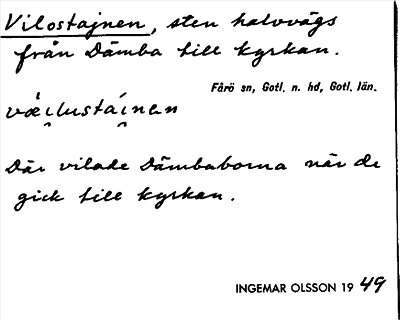 Vilostajnen, sten halvvägs
från Dämba till kyrkan.
Fårö sn, Gotl. n. hd, Gotl. län.
væ̂i̯lustái̯nen
Där vilade Dämbaborna när de
gick till kyrkan.
INGEMAR OLSSON 19 49